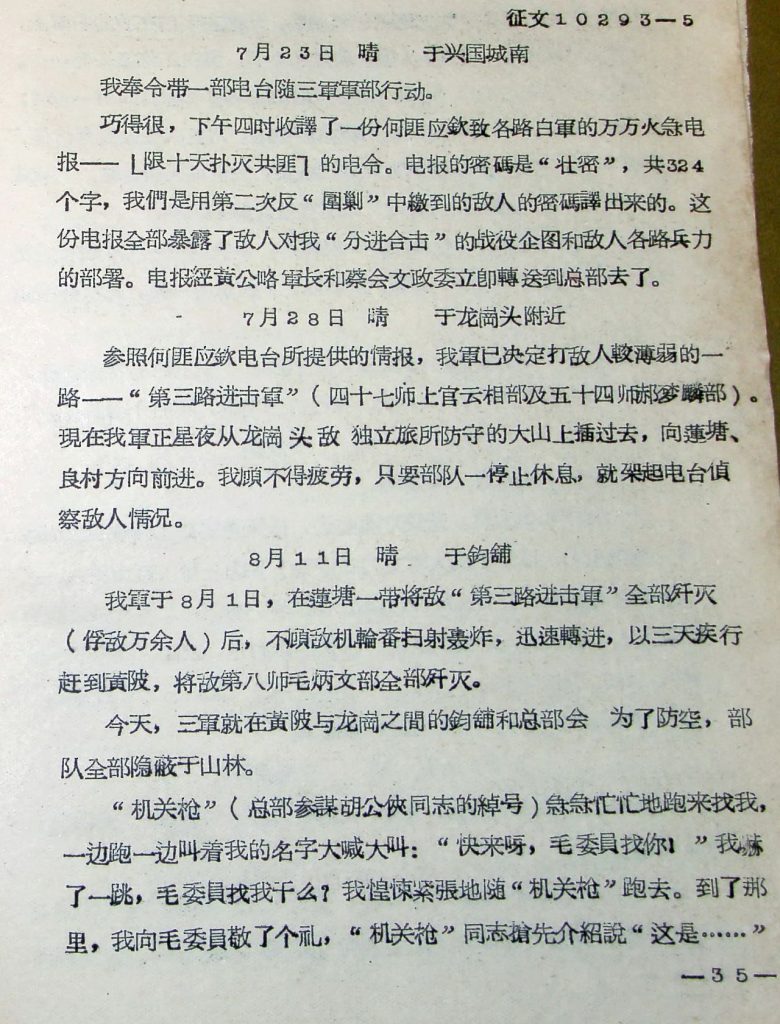 征文10293—5
7月23日 晴 于兴国城南
我奉令带一部电台随三軍軍部行动。
巧得很，下午四时收譯了一份何匪应欽致各路白軍的万万火急电
报——⌊限十天扑灭共匪⌉的电令。电报的密碼是“壮密”，共324
个字，我們是用第二次反“圍剿”中繳到的敌人的密碼譯出来的。这
份电报全部暴露了敌人对我“分进合击”的战役企图和敌人各路兵力
的部署。电报經黃公略軍长和蔡会文政委立卽轉送到总部去了。
7月28日 晴 于龙崗头附近
参照何匪应欽电台所提供的情报，我軍已决定打敌人較薄弱的一
路——“第三路进击軍”（四十七师上官云相部及五十四师郝梦麟部）。
現在我軍正星夜从龙崗头敌 独立旅所防守的大山上插过去，向蓮塘、
良村方向前进。我顾不得疲劳，只要部队一停止休息，就架起电台偵
察敌人情况。
8月11日 晴 于鈞舖
我軍于8月1日，在蓮塘一带将敌“第三路进击軍”全部歼灭
（俘敌万余人）后，不顾敌机輪番扫射轰炸，迅速轉进，以三天疾行
赶到黃陂，将敌第八师毛炳文部全部歼灭。
今天，三軍就在黃陂与龙崗之間的鈞舖和总部会 为了防空，部
队全部隐蔽于山林。
“机关枪”（总部参謀胡公俠同志的綽号）急急忙忙地跑来找我，
一边跑一边叫着我的名字大喊大叫：“快来呀，毛委員找你！”我嚇
了一跳，毛委員找我干么？我惶悚紧張地随“机关枪”跑去。到了那
里，我向毛委員敬了个礼，“机关枪”同志搶先介紹說“这是……”
—35—